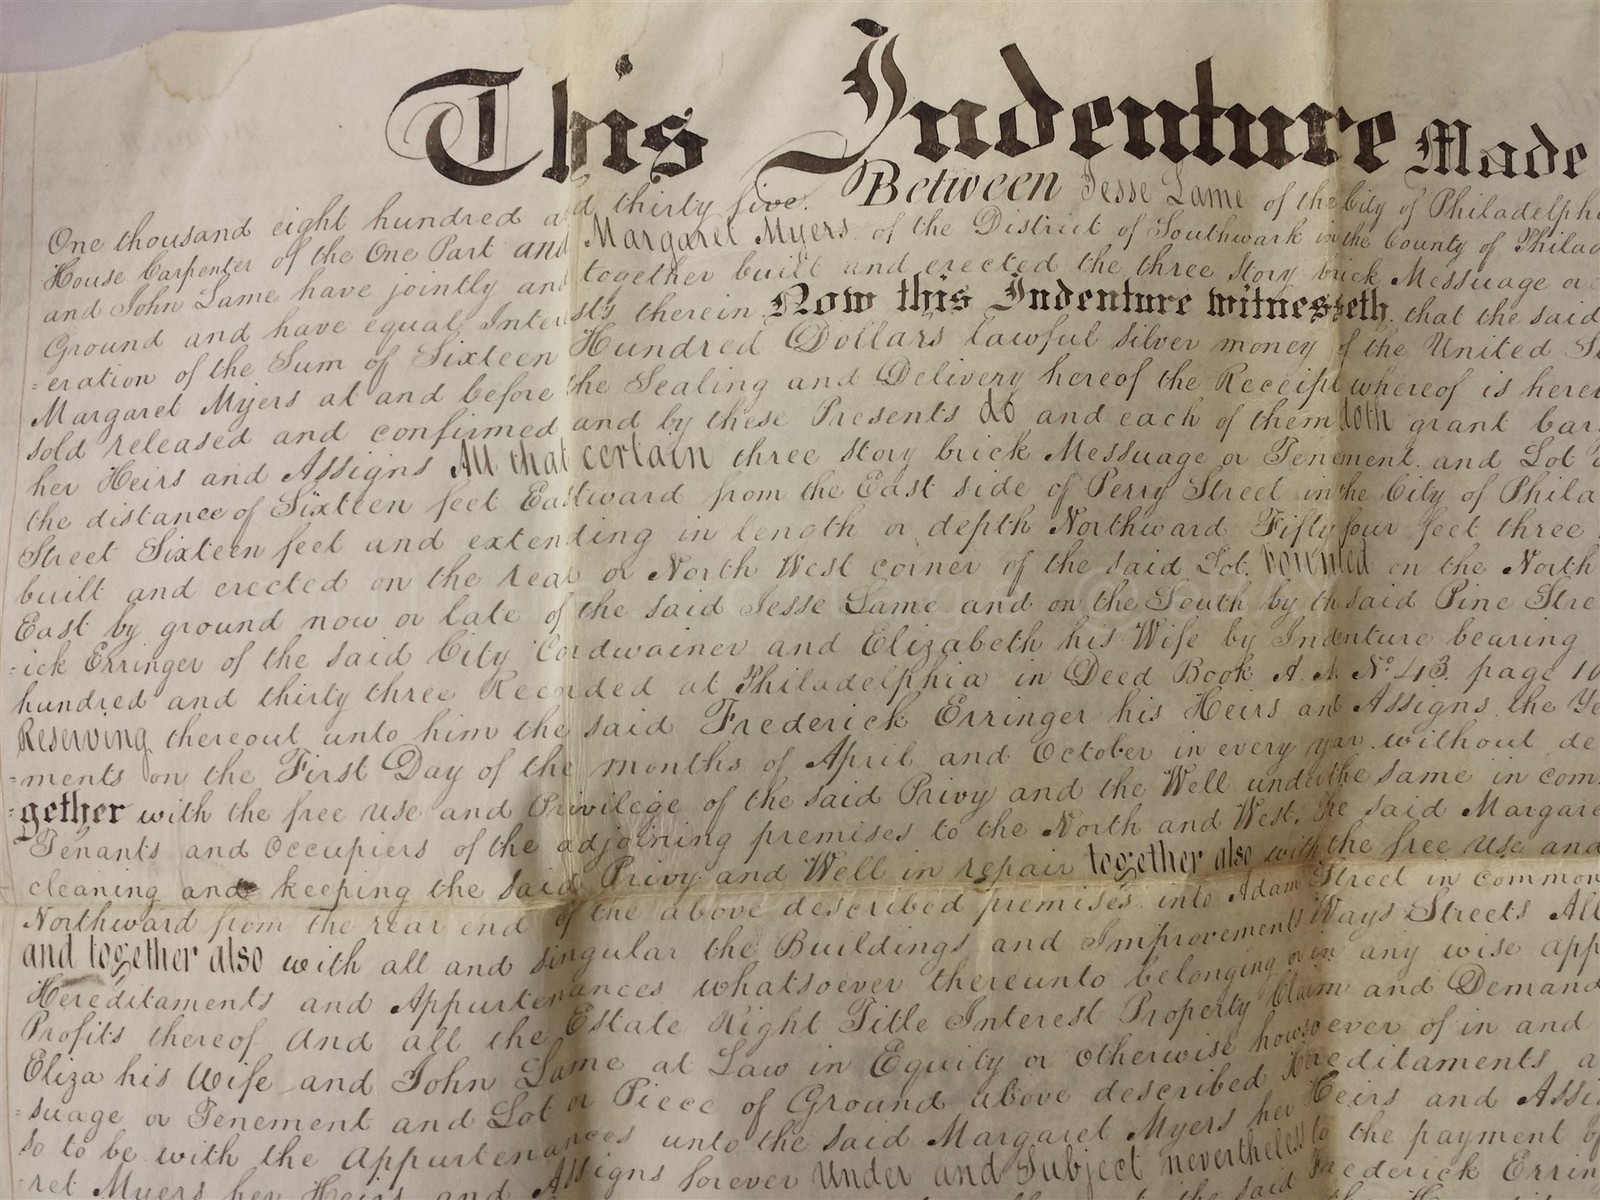 This Indenture Made
One thousand eight hundred and thirty five. Between Jesse Lame of the City of Philadelph
House Carpenter of the One Part and Margaret Myers of the District of Southwark in the County of Philad
and John Lame have jointly and together built and erected the three Story brick Messuage or
Ground and have equal Interests therein Now this Indenture witnesseth that the said
=eration of the Sum of Sixteen Hundred Dollars lawful silver money of the United S
Margaret Myers at and before the Sealing and Delivery hereof the Receipt whereof is here
sold released and confirmed and by these Presents do and each of them doth grant bar
her Heirs and Assigns All that certain three story brick Messuage or Tenement and Lot
the distance of Sixteen feet Eastward from the East side of Perry Street in the City of Phila
Street Sixteen feet and extending in length or depth Northward Fifty four feet three
built and erected on the rear or North West corner of the said Lot. Bounded on the North
East by ground now or late of the said Jesse Lame and on the South by the said Pine Stre
=ick Erringer of the said City Cordwainer and Elizabeth his Wife by Indenture bearing
hundred and thirty three Recorded at Philadelphia in Deed Book A. A. No. 43. page 10
Reserving thereout unto him the said Frederick Erringer his Heirs and Assigns the Ye
=ments on the First Day of the months of April and October in every year without de
=gether with the free use and Privilege of the said Privy and the Well under the same in com
Tenants and Occupiers of the adjoining premises to the North and West, he said Margare
cleaning and keeping the said Privy and Well in repair together also with the free use and
Northward from the rear end of the above described premises into Adam Street in common
and together also with all and singular the Buildings and Improvements Ways Streets All
Hereditaments and Appurtenances whatsoever thereunto belonging or in any wise app
Profits thereof And all the Estate Right Title Interest Property Claim and Demand
Eliza his Wife and John Lame at Law in Equity or otherwise howsoever of in and
=suage or Tenement and Lot or Piece of Ground above described Hereditaments a
so to be with the Appurtenances unto the said Margaret Myers her Heirs and Assi
=ret Myers her Heirs and Assigns forever Under and Subject nevertheless to the payment of
the said Frederick Errin